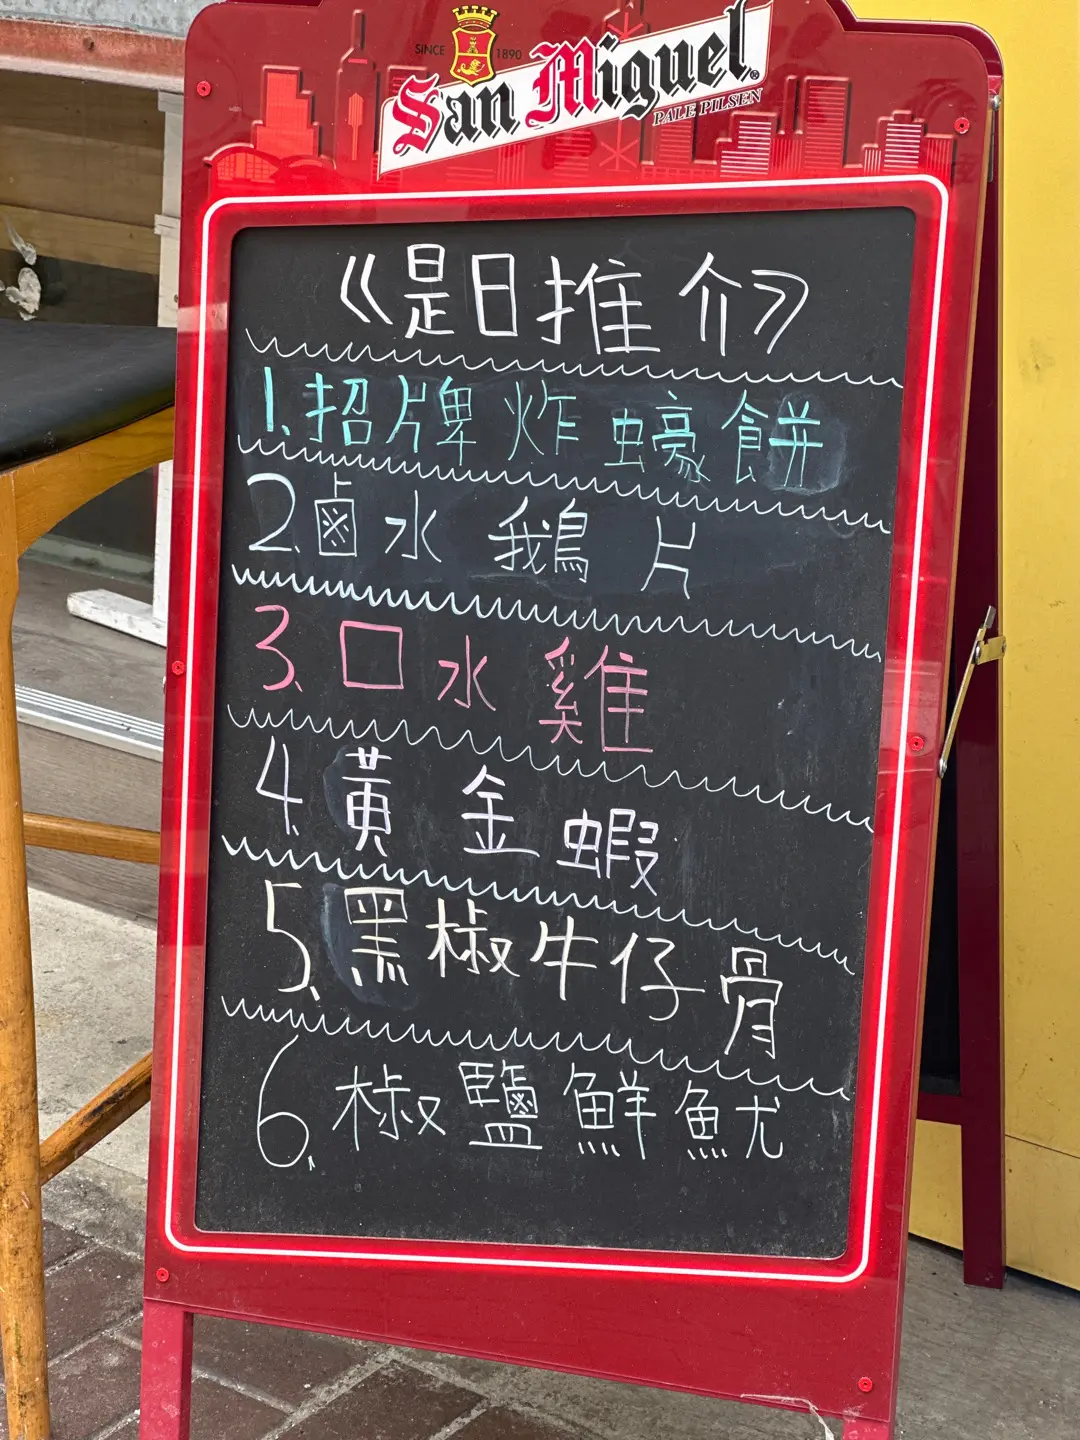 SINCE 1890
San Miguel
PALE PILSEN
《是日推介》
1.招牌炸蠔餅
2.鹵水鵝片
3.口水雞
4.黃金蝦
5.黑椒牛仔骨
6.椒鹽鮮魷